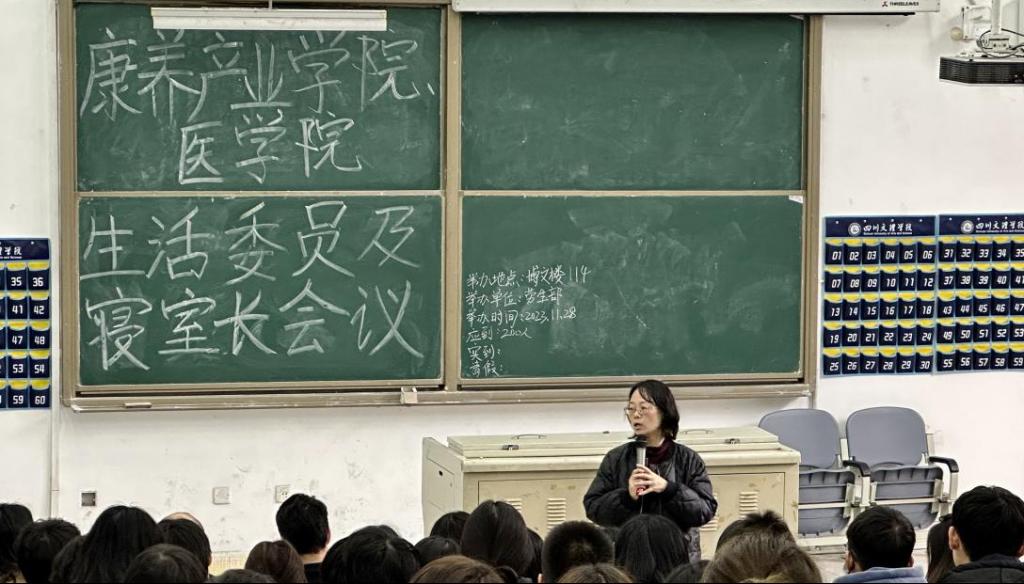 THREELEAVES
康养产业学院、
医学院
生活委员及
寝室长会议
举办地点：博文楼114
举办单位：学生部
举办时间：2023.11.28
应到：200人
实到：
请假：
35 36
41 42
47 48
53 54
59 60
四川文理学院
01 02 03 04 05 06
07 08 09 10 11 12
13 14 15 16 17 18
19 20 21 22 23 24
25 26 27 28 29 30
四川文理学院
31 32 33 34 35
37 38 39 40 41
43 44 45 46 47
49 50 51 52 53
55 56 57 58 59